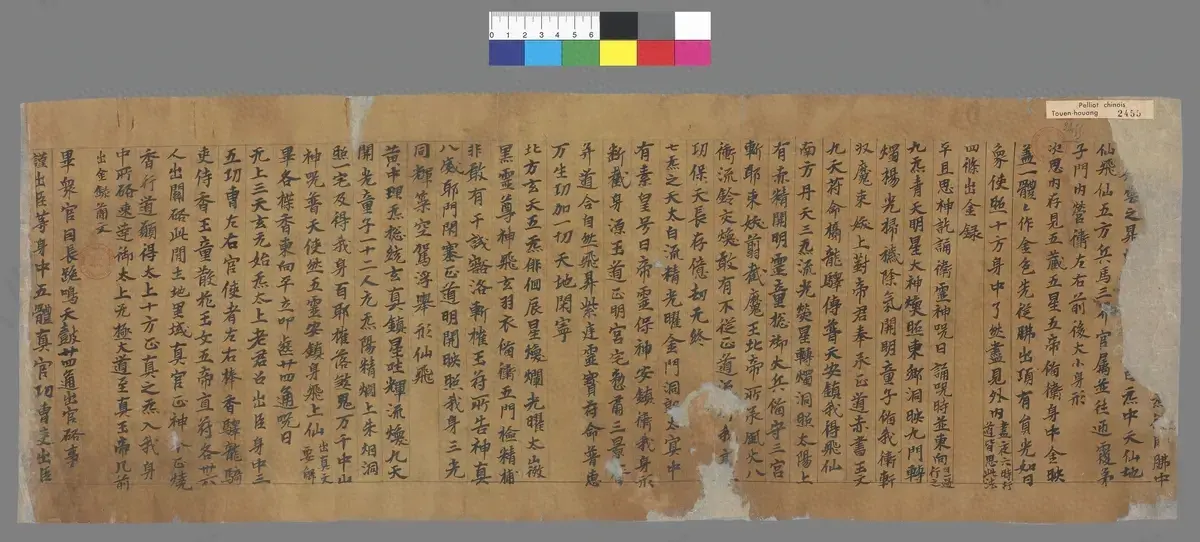 肺中
炁中天仙地
仙飛仙五方兵馬三官屬並覆第
子門內營衛左右前後大小等形
次思內存見五藏五星五帝備衛身中金映
蓋一體上作金色先從肺出項有負光如日
象使照十方身中了然盡見外內晝夜六時行道皆思此法
四條出金錄
平旦思神訖誦衛靈神呪曰誦呪時並東向行之
九炁青天明星大神煥照東鄉洞映九門轉
燭楊光掃穢除氣開明童子備我衛軒
收魔束妖上對帝君奉承正道赤書玉文
九天符命攝龍驛傳普天安鎮我得飛仙
南方丹天三炁流光熒星轉燭洞照太陽上
有赤精開明靈童摠御火兵備守三宮
斬耶束妖翦截魔王北帝所承風火八
衝流鈴交煥敢有不從正道
功保天長存億劫无終
七炁之天太白流精光曜金門洞太冥中
有素皇号曰帝靈保神安鎮衛我身形
斷截身源王道正明宮宅整肅三景
昇道合自然飛昇紫庭靈寶符命普惠
万生功加一切天地開寧
北方玄天五炁俳佪辰星煥爛光曜太山微
黑靈尊神飛玄羽衣備衛五門檢精捕
非敢有干試豁洛斬摧玉符所告神真
八威耶門閇塞正道明開映照我身三光
同輝策空駕浮舉形仙飛
黃中理炁摠統玄真鎮星吐輝流煥九天
開光童子一十二人元炁陽精焰上朱烟洞
照一宅及得我身百耶摧落煞鬼万千中山
神呪普天使然五靈安鎮身飛上仙出真文要解
畢各捻香東向平立叩齒廿四通呪曰
无上三天玄元始炁太上老君召出臣身中三
五功曹左右官使者左右捧香驛龍騎
吏侍香玉童散花玉女五帝直符各卅六
人出關啓此間土地里域真官正神今正燒
香行道願得太上十方正真之炁入我身
中所啓速達御太上无極大道至真玉帝几前
出金錄簡文
畢眾官同長跪鳴天鼓廿四通出官啓事
謹出臣等身中五體真官功曹吏出臣
Pelliot chinois
Touen-houang 2455
0 1 2 3 4 5 6